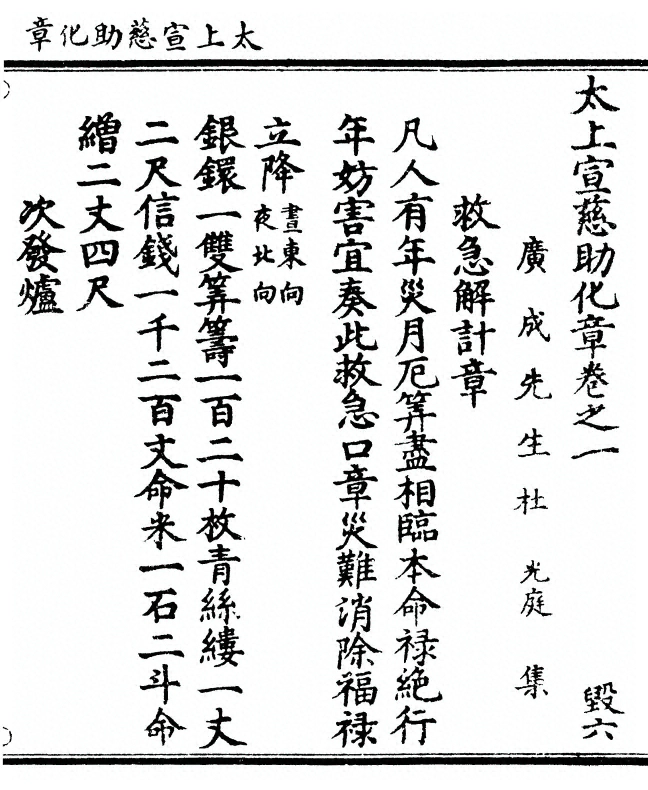 太上宣慈助化章
太上宣慈助化章卷之一 毀六
廣成先生杜光庭集
救急解計章
凡人有年災月厄筭盡相臨本命禄絶行
年妨害宜奏此救急口章災難消除福禄
立降晝東向夜北向
銀鐶一雙筭籌一百二十枚青絲縷一丈
二尺信錢一千二百文命米一石二斗命
繒二丈四尺
次發爐